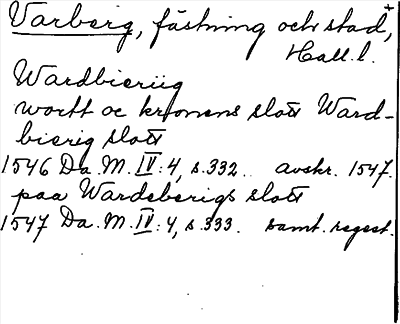 Varberg, fästning och stad,
Hall. l.
Wardbieriig
wortt oc kronens slott Ward-
bierig slott
1546 Da. M. IV: 4, s. 332. avskr. 1547.
paa Wardeberigs slott
1547 Da. M. IV: 4, s. 333. samt. regest.